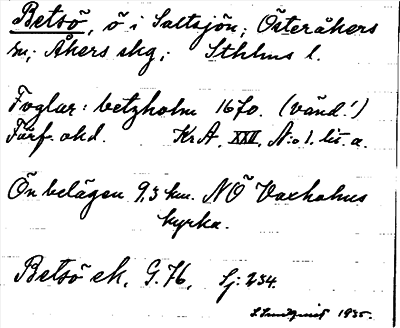 Betsö, ö i Saltsjön; Österåkers
sn; Åkers skg; Sthlms l.
Foglar: betzholm 1670. (vänd!)
Förf. okd. KrA, XXII, N:o 1. lit. a.
Ön belägen 9,3 km. NÖ Vaxholms
kyrka.
Betsö ek. G. 76, Sj: 234.
S Lundquist 1935.